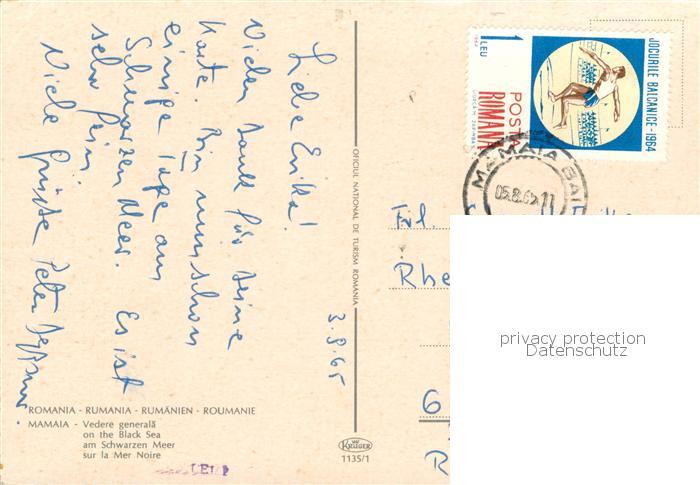 Liebe Erika!
Vielen Dank für Deine
Karte. Bin nun schon
einige Tage am
Schwarzen Meer. Es ist
sehr fein
Viele Grüße Peter
3.8.65
ROMANIA - RUMANIA - RUMÄNIEN - ROUMANIE
MAMAIA - Vedere generală
on the Black Sea
am Schwarzen Meer
sur la Mer Noire
OFICIUL NATIONAL DE TURISM ROMANIA
KRÜGER
1135/1
LEI
1
LEU
1964
POSTA
ROMANA
JOCURILE BALCANICE-1964
MAMAIA BAI
05.8.65 11
Frl
Rhe
6
R
privacy protection
Datenschutz